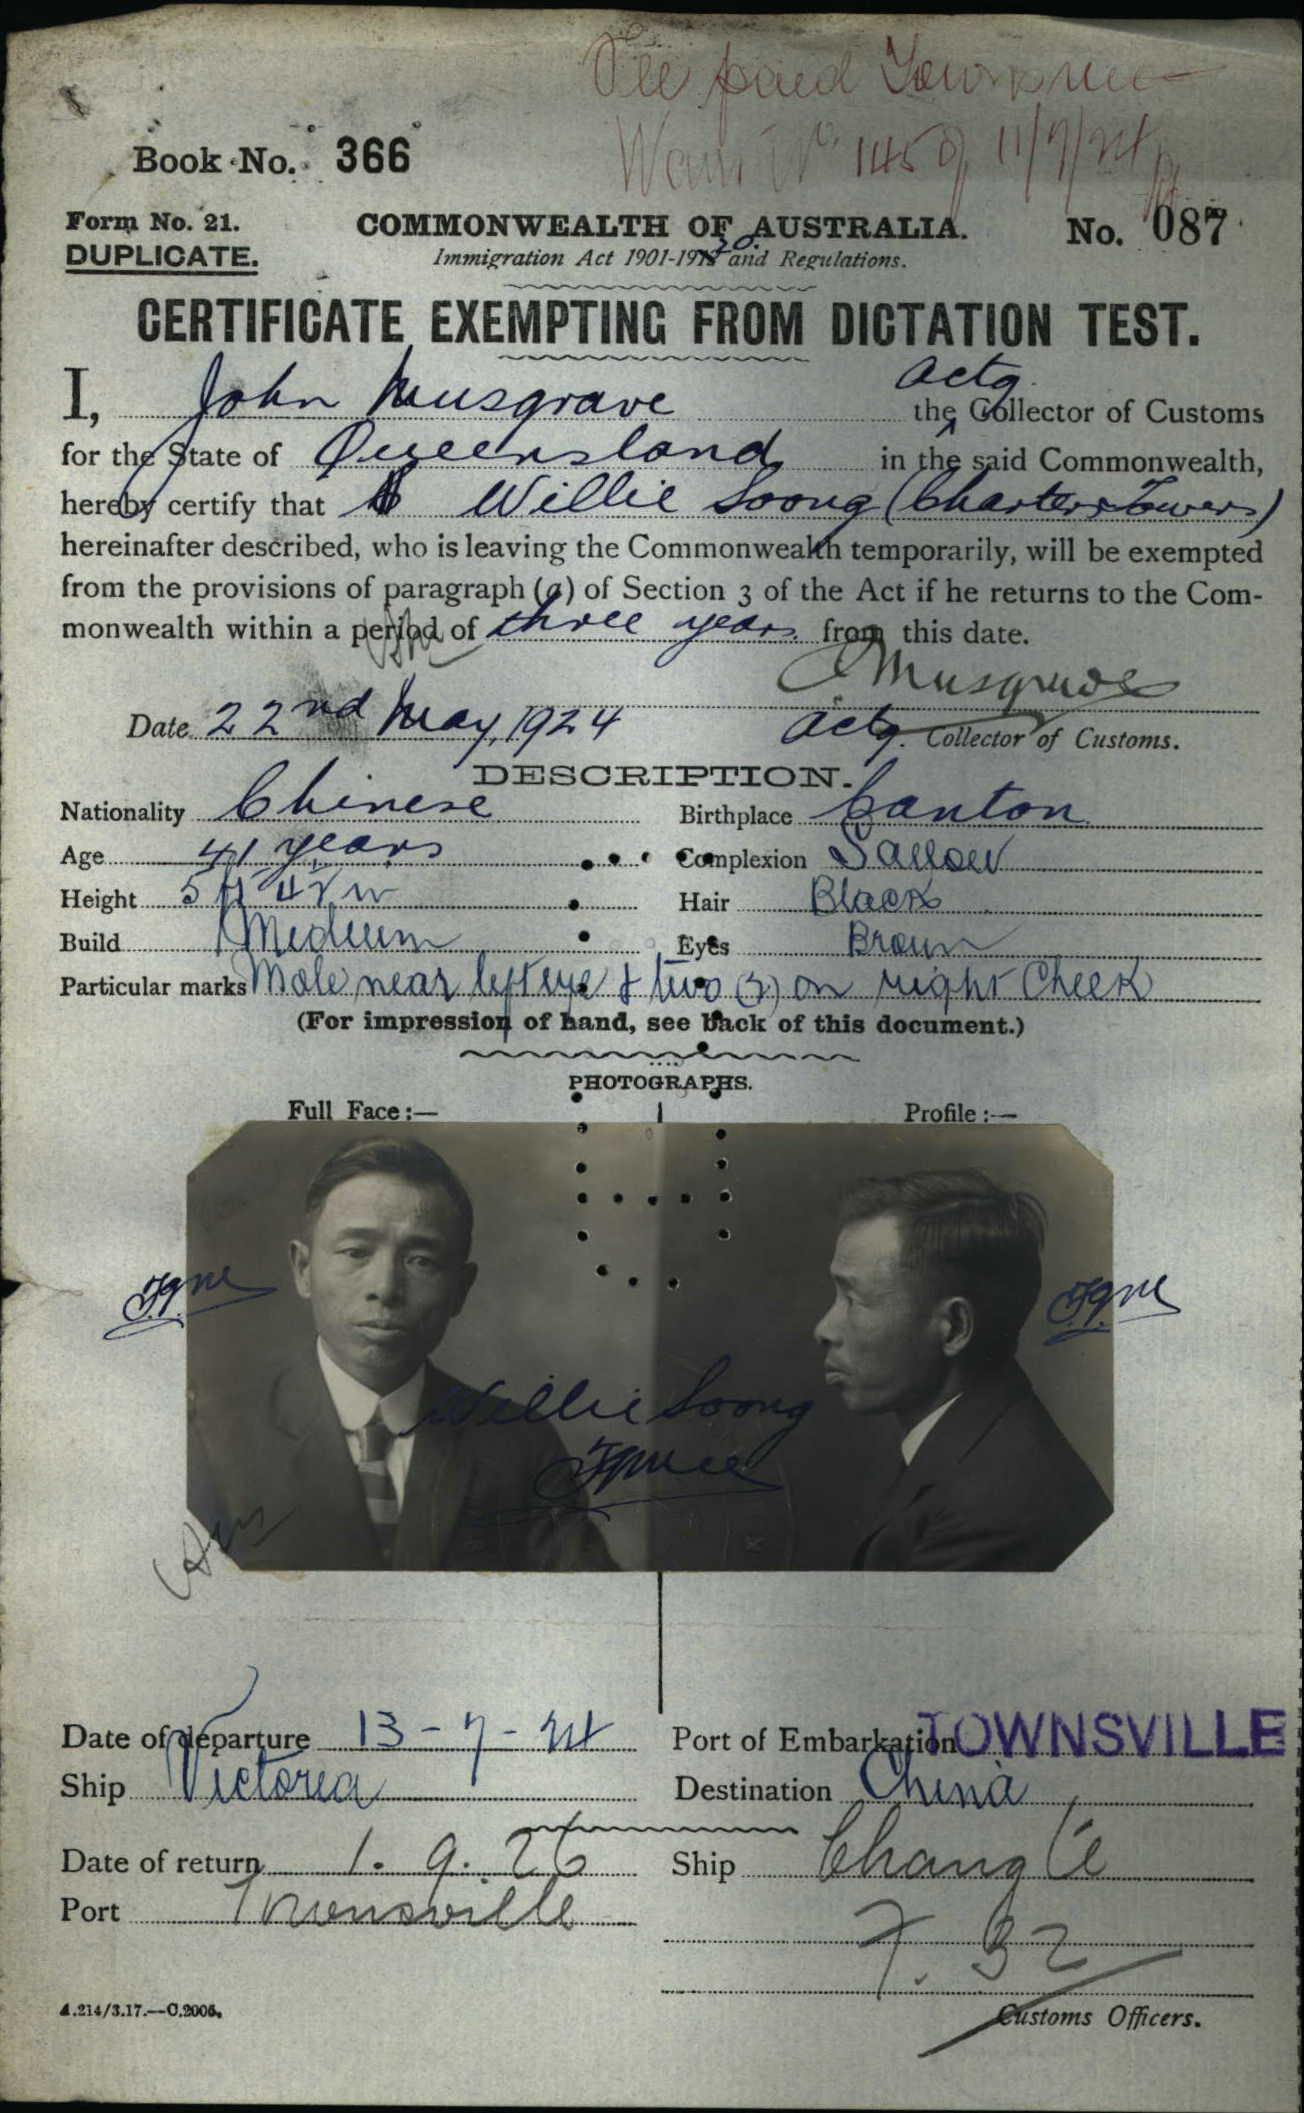 Fee paid Townsville
No 1459 11/7/24
Book No. 366
Form No. 21.
DUPLICATE.
COMMONWEALTH OF AUSTRALIA.
No. 087
Immigration Act 1901-1920 and Regulations.
CERTIFICATE EXEMPTING FROM DICTATION TEST.
I, John Musgrave the Actg. Collector of Customs
for the State of Queensland in the said Commonwealth,
hereby certify that Willie Soong (Charters Towers)
hereinafter described, who is leaving the Commonwealth temporarily, will be exempted
from the provisions of paragraph (a) of Section 3 of the Act if he returns to the Com-
monwealth within a period of three years from this date.
Musgrave
Date 22nd May, 1924 Actg. Collector of Customs.
DESCRIPTION.
Nationality Chinese Birthplace Canton
Age 41 years Complexion Sallow
Height 5 ft 4½ in Hair Black
Build Medium Eyes Brown
Particular marks Mole near left eye & two (2) on right Cheek
(For impression of hand, see back of this document.)
PHOTOGRAPHS.
Full Face:— Profile:—
Willie Soong
Date of departure 13-7-24 Port of Embarkation TOWNSVILLE
Ship Victoria Destination China
Date of return 1.9.26 Ship Changte
Port Townsville
7.32
Customs Officers.
A.214/3.17.—C.2006.